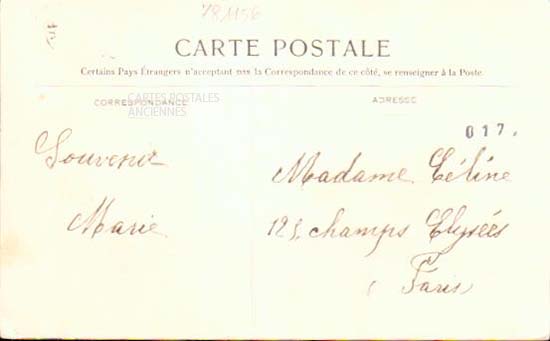 78 1156
CARTE POSTALE
Certains Pays Étrangers n'acceptant pas la Correspondance de ce côté, se renseigner à la Poste.
CORRESPONDANCE
ADRESSE
CARTES POSTALES
ANCIENNES
017.
Souvenir
Marie
Madame Céline
123, champs Elysées
Paris